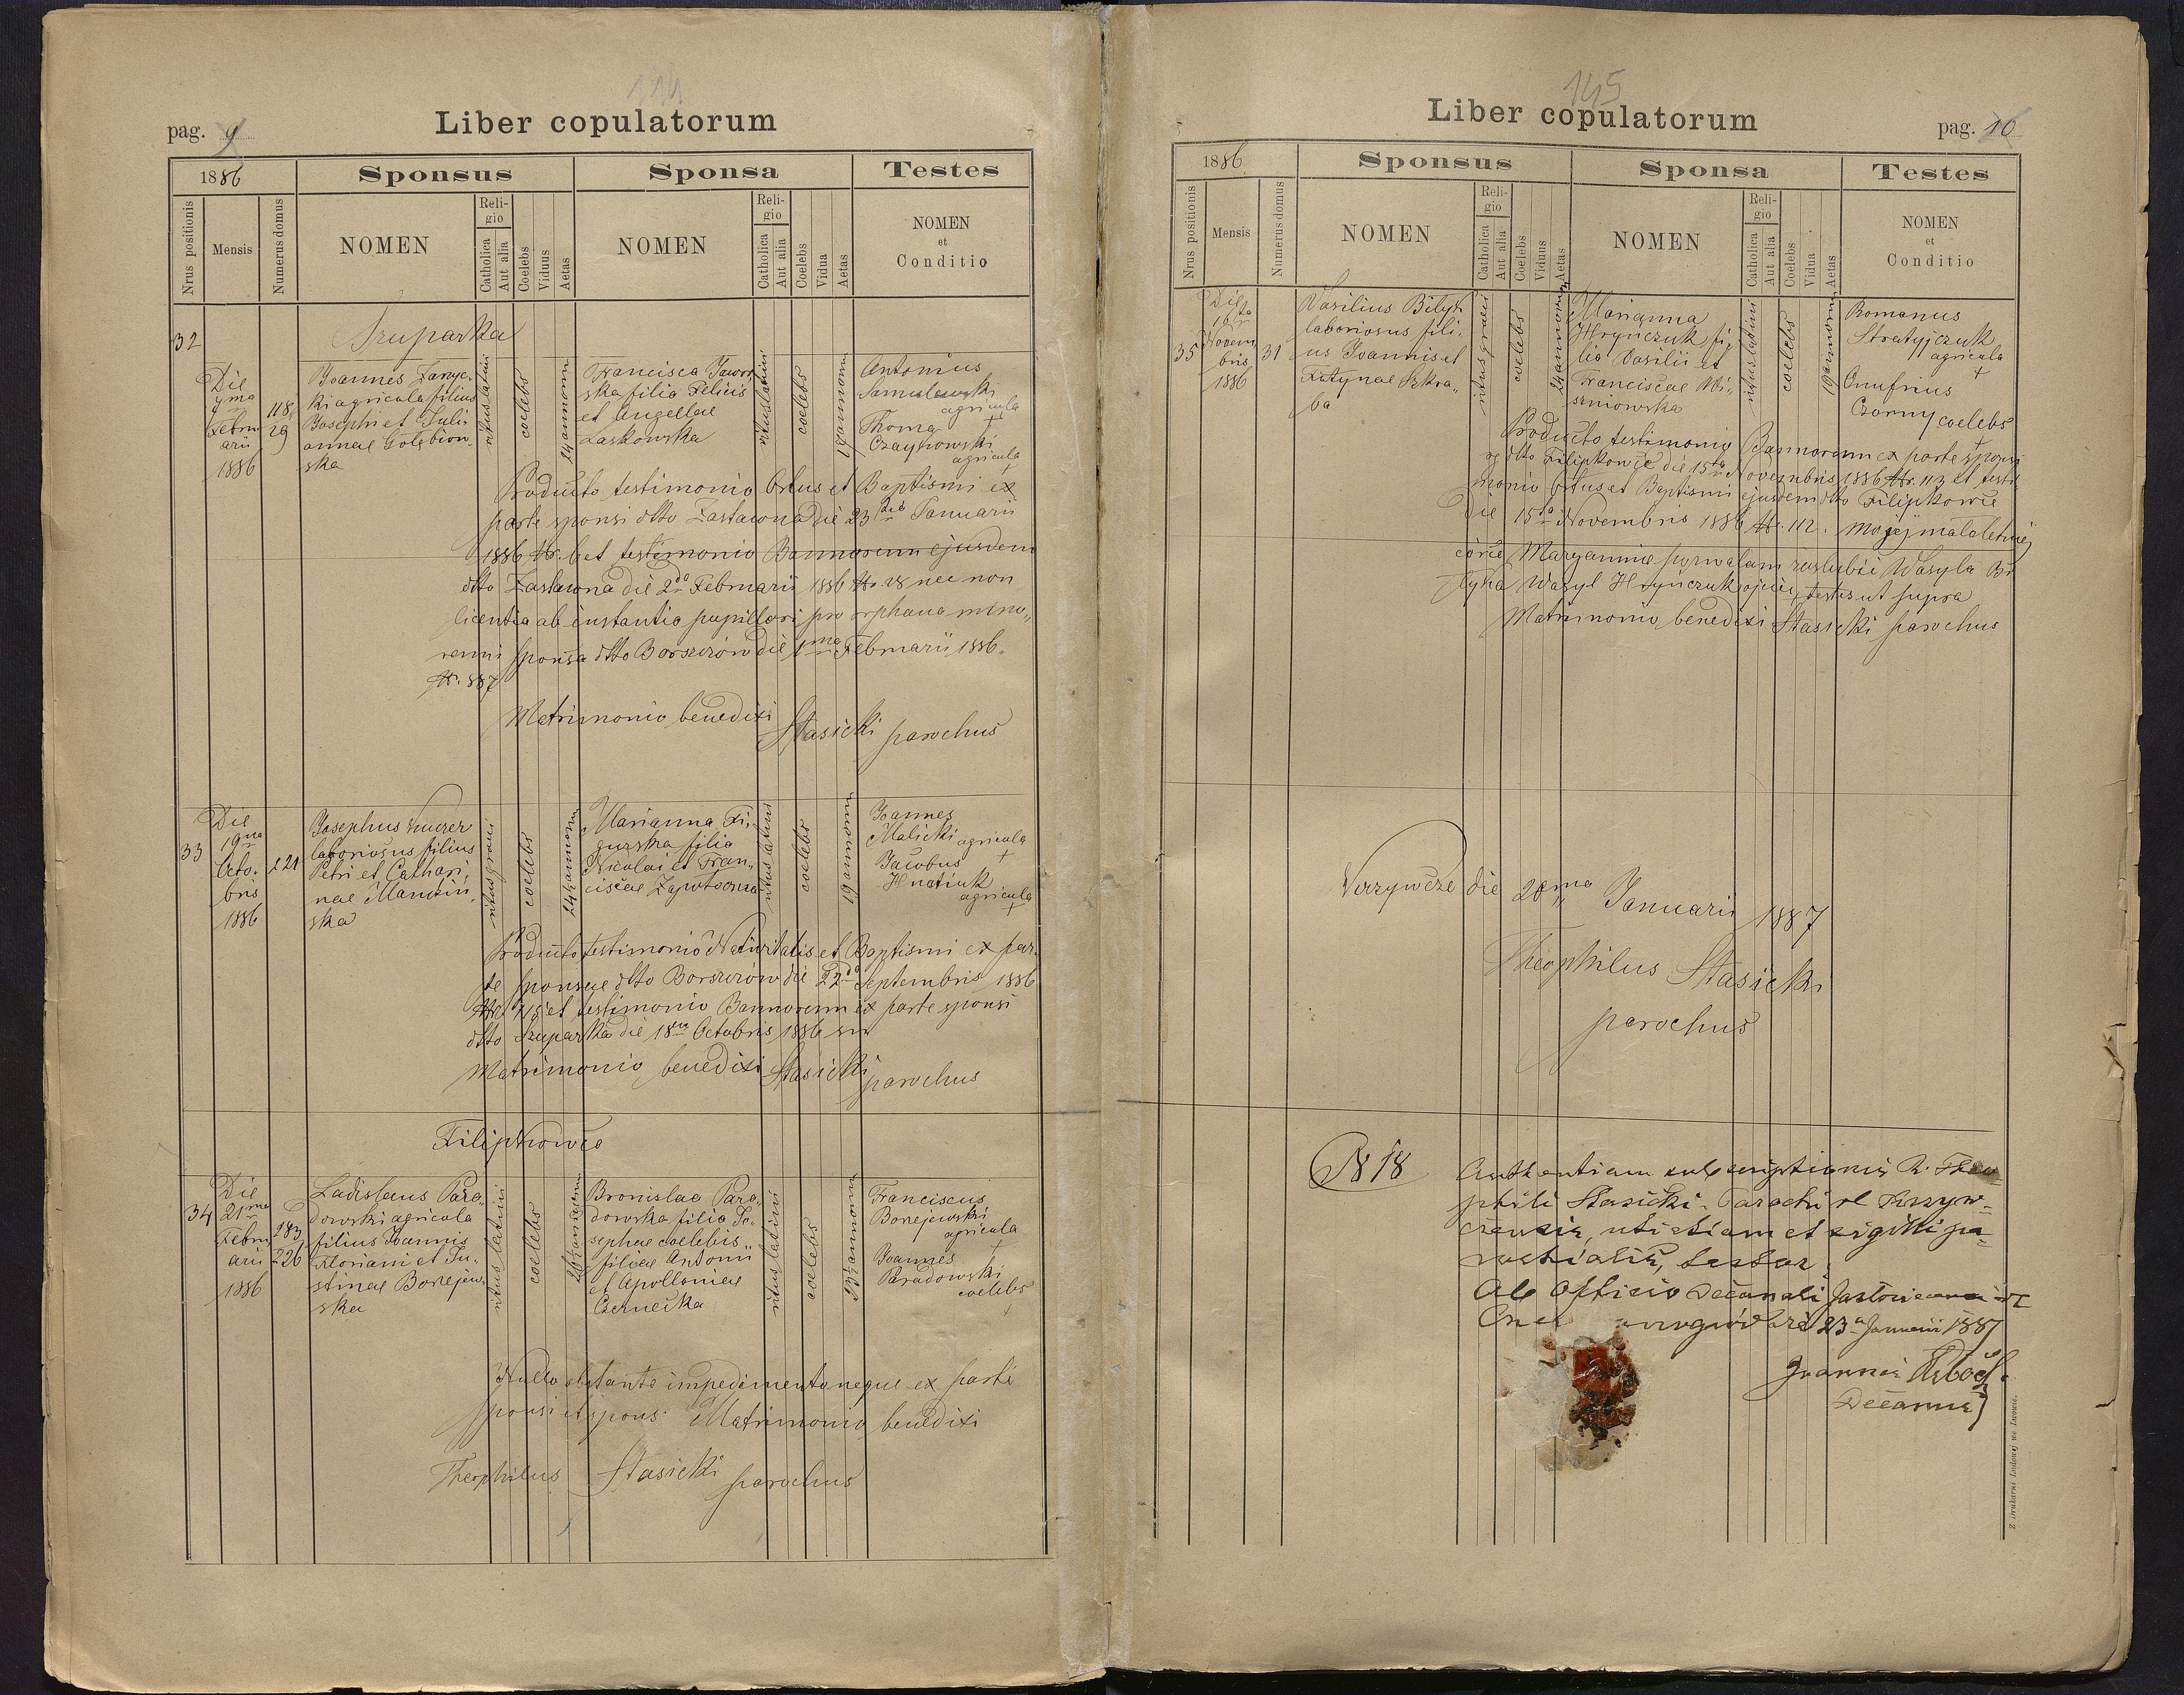 144
Liber copulatorum
pag. 9
1886
Sponsus
Sponsa
Testes
Nrus positionis
Mensis
Numerus domus
NOMEN
Religio
Catholica
Aut alia
Coelebs
Viduus
Aetas
NOMEN
Religio
Catholica
Aut alia
Coelebs
Vidua
Aetas
NOMEN
et
Conditio
32
Szuparka
Die
Febru
arii
1886
118
29
Joannes
ki agricola filius
Josephi et Juli
annae Gołębiow
ska
ritus latini
coelebs
24 annorum
Francisca Jawor
ska filia Felicis
et Angellae
Laskowska
ritus latini
coelebs
annorum
Antonius
agricola
+
Thoma
agricola
+
Producto testimonio Ortus et Baptismi ex
parte sponsi dtto Zastawna die 23 Januarii
1886 Nr. 6 et testimonio Bannorum ejusdem
dtto Zastawna die 2do Februarii 1886 No nec non
licentia ab instantia pupillari pro orphana mino„
renni sponsa dtto Borszczów die 1ma Februarii 1886.
Nr. 887
Matrimonio benedixi
Stasicki parochus
33
Die
19na
Octo.
bris
1886
221
Josephus
laboriosus filius
Petri et Cathari
nae
ska
coelebs
24 annorum
Marianna Fi„
gurska filia
Nicolai et Fran„
ciscae
ritus latini
coelebs
19 annorum
Joannes
Malicki agricola
+
Jacobus
Hnatiuk
agricola
+
Producto testimonio Nativitatis et Baptismi ex par
te sponsae dtto Borszczów die 22do Septembris 1886
Nr 118 et testimonio Bannorum ex parte sponsi
dtto Szuparka die 18va Octobris 1886
Matrimonio benedixi Stasicki
parochus
Filipkowce
34
Die
21ma
Febru
arii
1886
183
226
Ladislaus Para„
dowski agricola
filius Joannis
Floriani et Ju„
stinae Boniejew„
ska
ritus latini
coelebs
26 annorum
Bronislaa Para„
dowska filia Jo„
sephae coelebis
filiae Antonii
et Apolloniae
Czernecka
ritus latini
coelebs
annorum
Franciscus
Boniejewski
agricola
+
Joannes
Paradowski
coelebs
+
Nullo obstante impedimento neque ex parte
sponsi et spons. Matrimonio benedixi
Theophilus Stasicki parochus
145
Liber copulatorum
pag. 10
1886
Sponsus
Sponsa
Testes
Nrus positionis
Mensis
Numerus domus
NOMEN
Religio
Catholica
Aut alia
Coelebs
Viduus
Aetas
NOMEN
Religio
Catholica
Aut alia
Coelebs
Vidua
Aetas
NOMEN
et
Conditio
35
Die
16ta
Novem
bris
1886
31
Vasilius Bilyk
laboriosus fili„
us Joannis et
Katynae Szkra„
ba
ritus graeci
coelebs
24 annorum
Marianna
Hryńczuk fi„
lia Vasilii et
Franciscae Wi„
szniowska
ritus latini
coelebs
19 annorum
Romanus
Stratyjczuk
agricola
+
Onufrius
Czorny coelebs
+
Producto testimonio Bannorum ex parte sponsi
dtto Filipkowce die 15ta Novembris 1886 Nr. 113 et testi
monio Ortus et Baptismi ejusdem dtto Filipkowce
die 15ta Novembris 1886 Nr. 112. Mojej małoletniej
córce Maryannie pozwalam zaślubić Wasyla Bi
łyka Wasyl Hryńczuk ojciec, testes ut supra
Matrimonio benedixi Stasicki parochus
Krzywcze die 20ma Januarii 1887
Theophilus Stasicki
parochus
N 18
Authentiam subscriptionis R. Theo
phili Stasicki. Parochi de Krzyw„
czensis, uti etiam et sigilli pa„
rochialis, testor
Ab Officio Decanali
die 23a Januarii 1887
Joannes
Decanus
Z drukarni Ludowej we Lwowie.